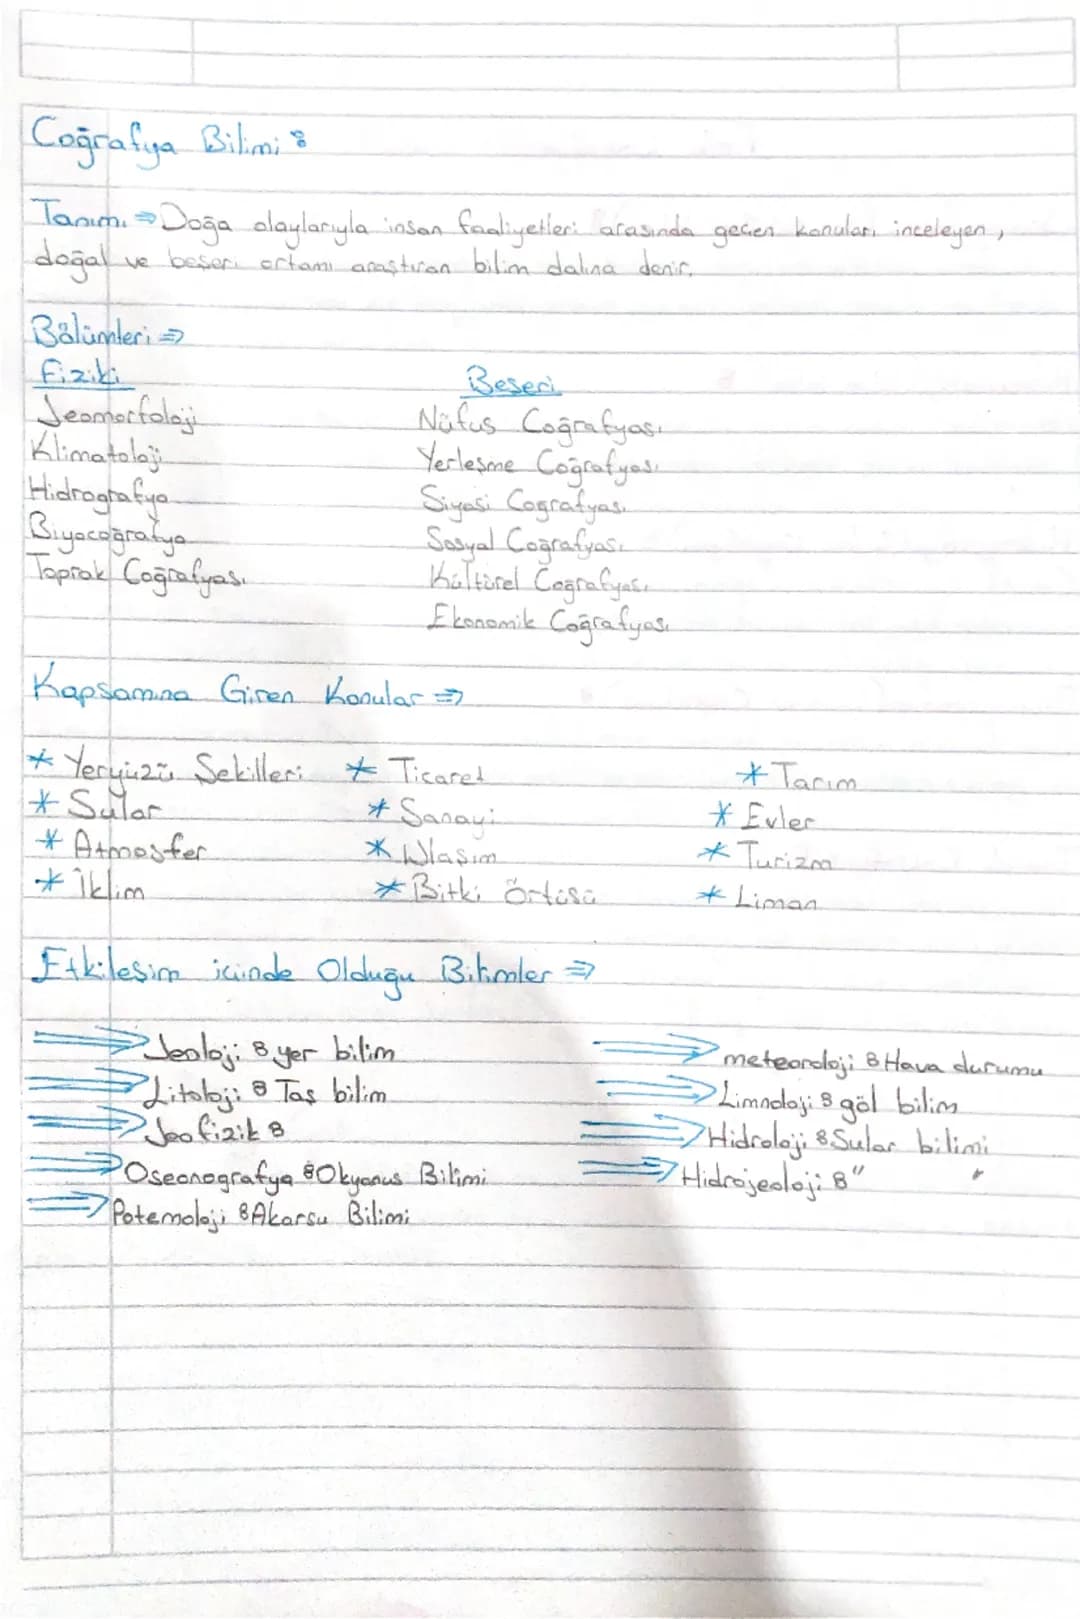 Coğrafya Bilimi:
Tanımı ⇒ Doğa olaylarıyla insan faaliyetleri arasında geçen konuları inceleyen,
doğal ve beşeri ortamı araştıran bilim dalına denir.
Bölümleri ⇒
Fiziki
Jeomorfoloji
Klimatoloji
Hidrografya
Biyocoğrafya
Toprak Coğrafyası
Beşeri
Nüfus Coğrafyası
Yerleşme Coğrafyası
Siyasi Coğrafyası
Sosyal Coğrafyası
Kültürel Coğrafyası
Ekonomik Coğrafyası
Kapsamına Giren Konular ⇒
* Yeryüzü Şekilleri * Ticaret * Tarım
* Sular * Sanayi * Evler
* Atmosfer * Ulaşım * Turizm
* İklim * Bitki Örtüsü * Liman
Etkileşim içinde Olduğu Bilimler ⇒
⇒ Jeoloji: yer bilim
⇒ Litoloji: Taş bilim
⇒ Jeofizik:
⇒ Oseonografya: Okyanus Bilimi
⇒ Potemoloji: Akarsu Bilimi
⇒ meteoroloji: Hava durumu
⇒ Limnoloji: göl bilim
⇒ Hidroloji: Sular bilimi
⇒ Hidrojeoloji: " "